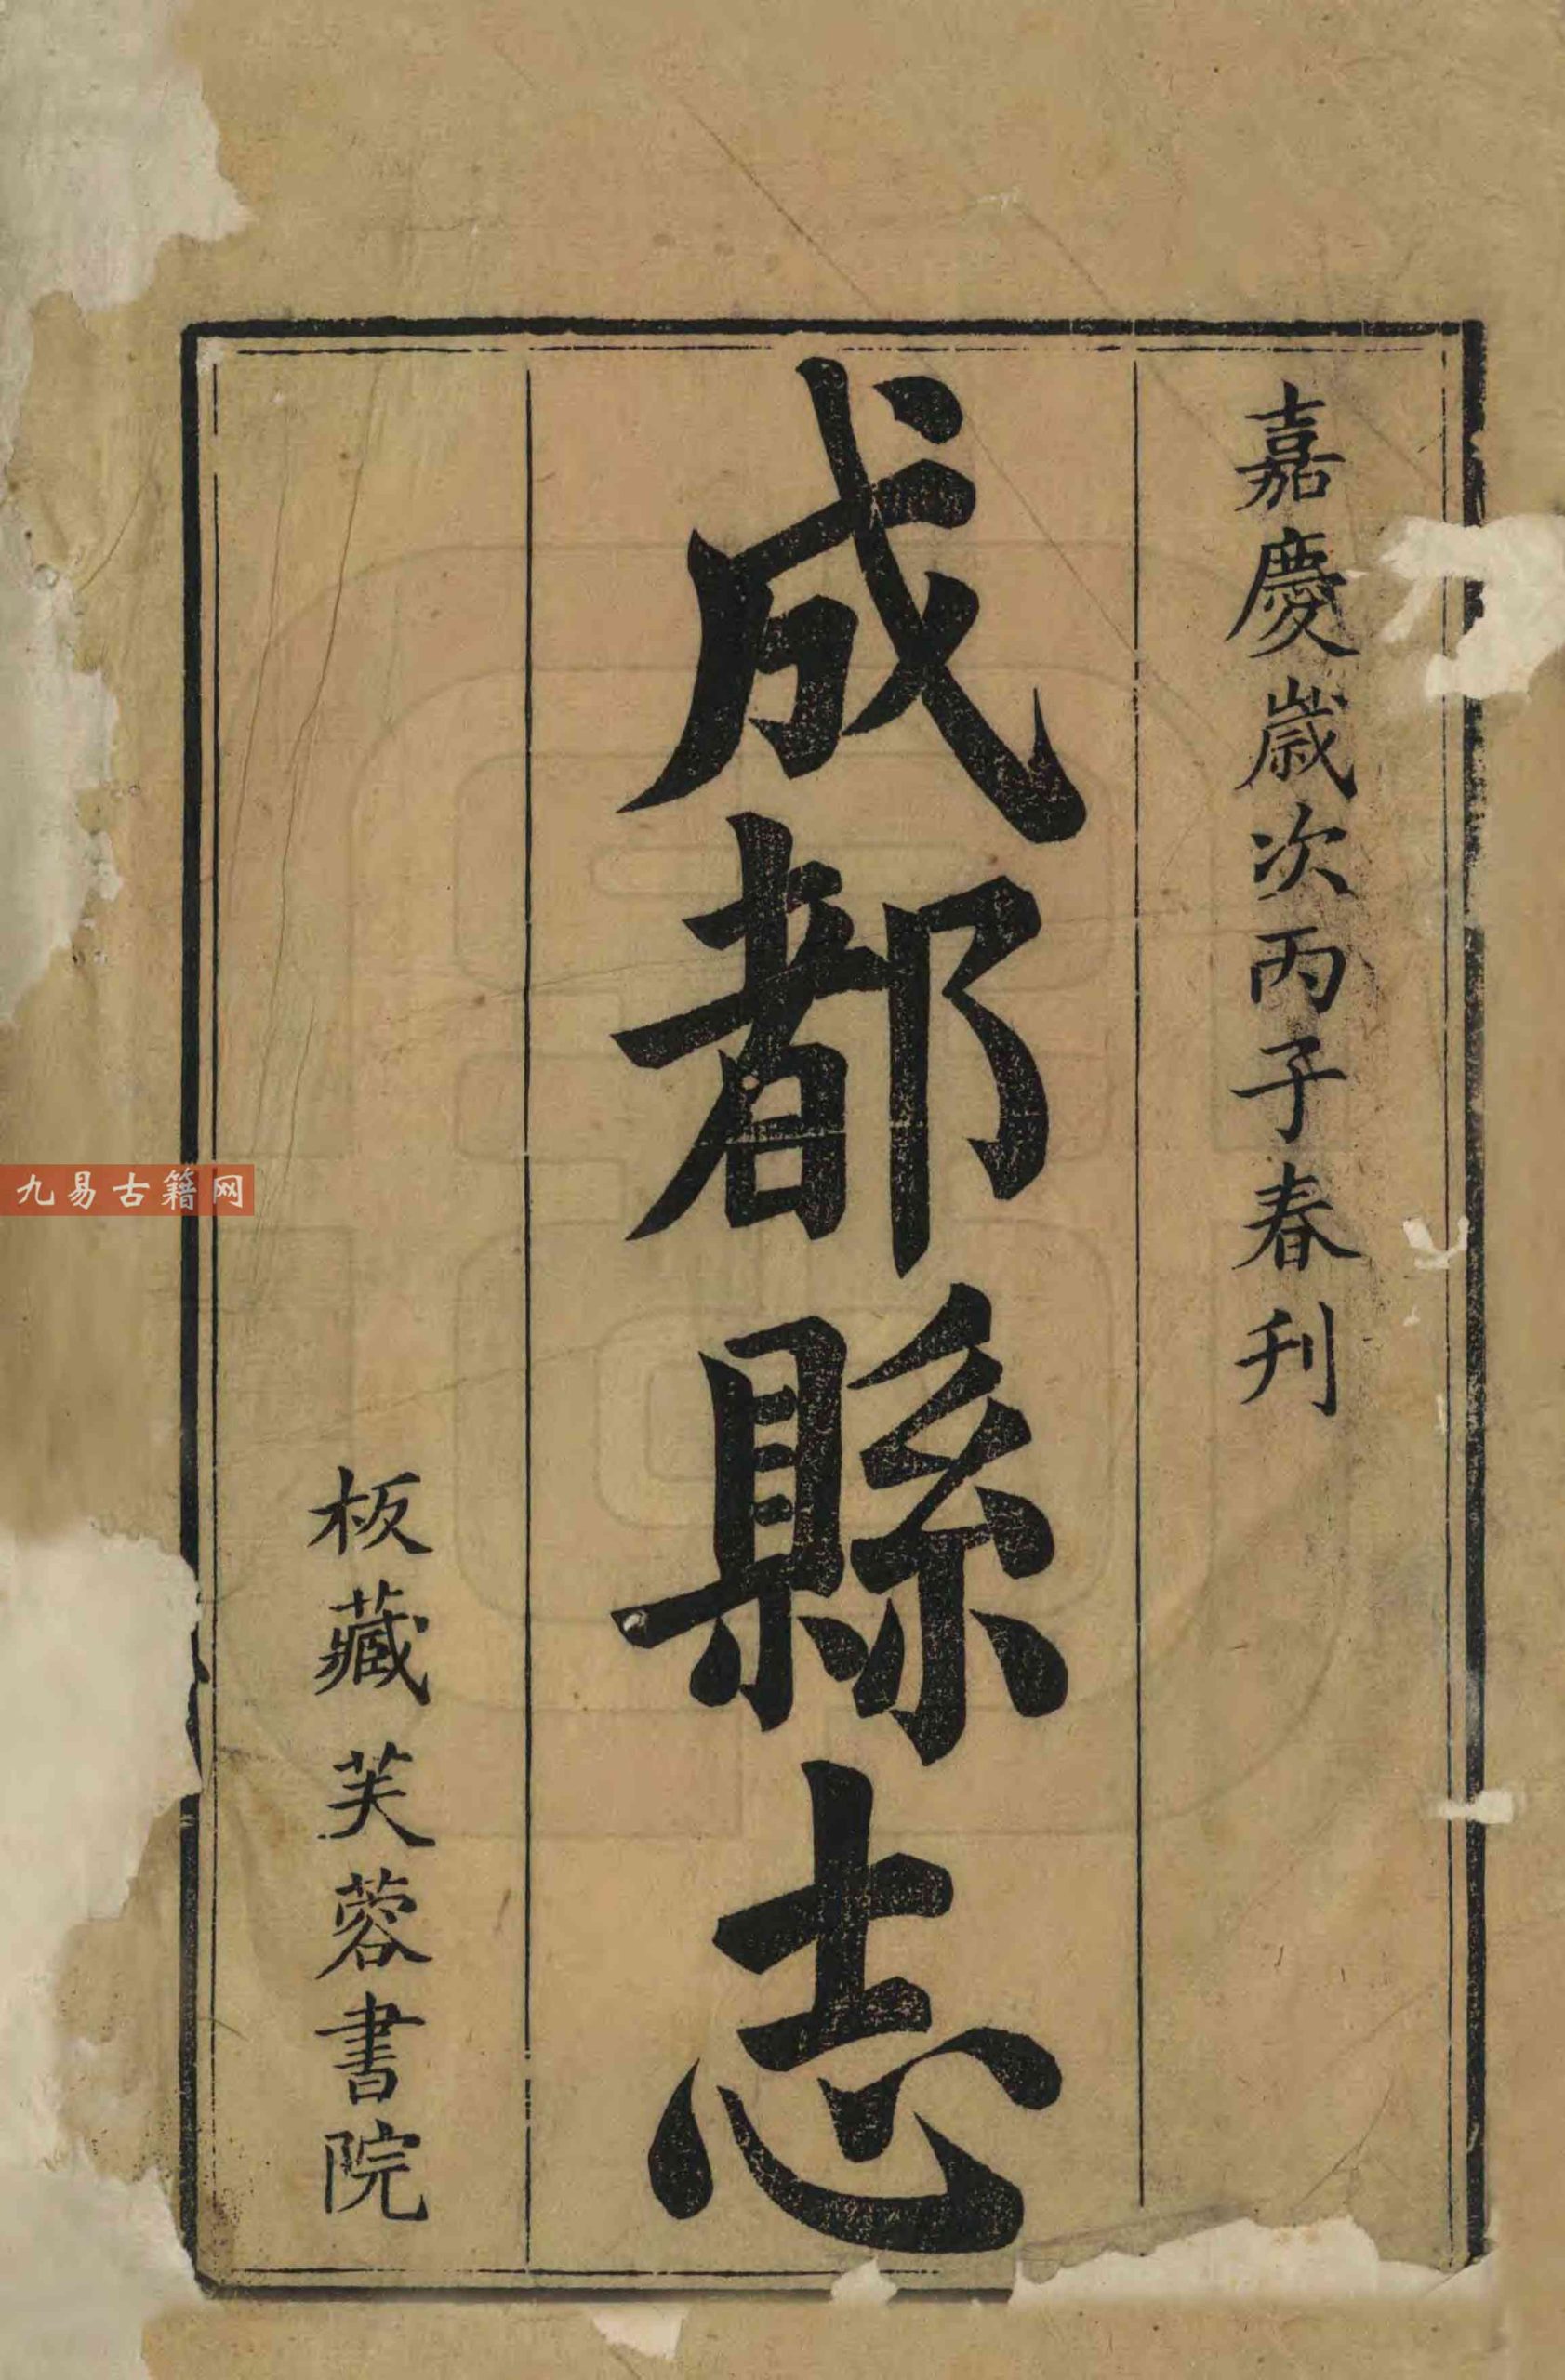 嘉慶歲次丙子春刊
成都縣志
板藏芙蓉書院
九易古籍网